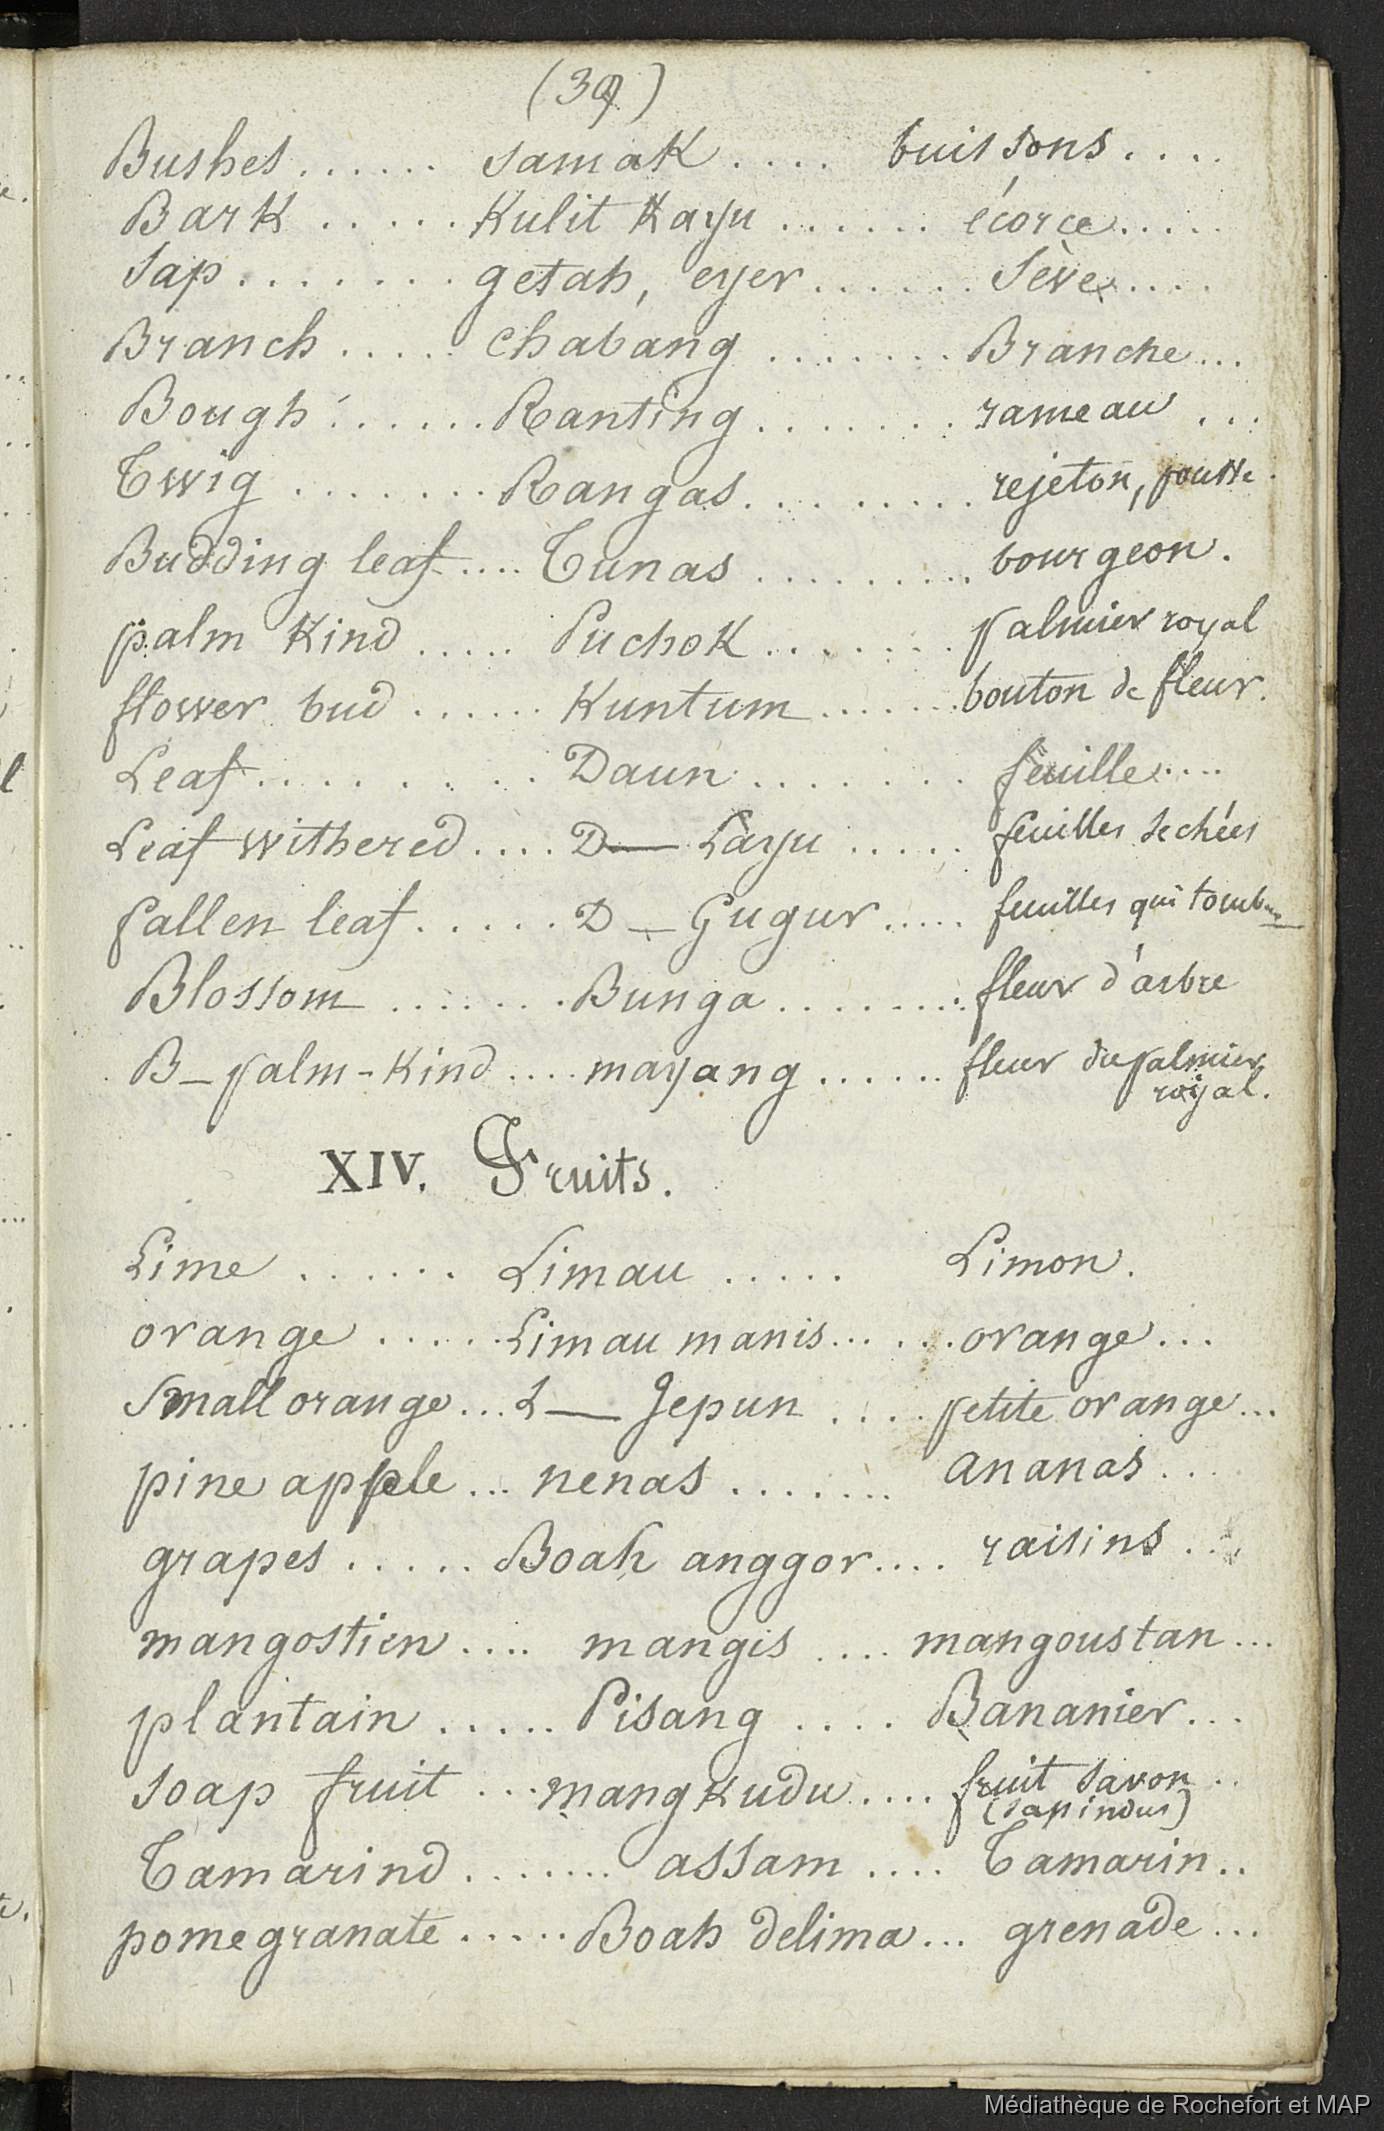 (39)
Bushes...... samak.... buissons....
Bark..... Kulit Kayu...... écorce.....
Sap....... getah, eyer...... Sève....
Branch..... Chabang....... Branche...
Bough...... Ranting....... rameau...
Twig....... Rangas......... rejeton, pousse.
Budding leaf.... Tunas......... bourgeon.
palm Kind..... Puchok....... palmier royal
flower bud...... Kuntum...... bouton de fleur.
Leaf......... Daun....... feuille....
Leaf withered.... D— Layu..... feuilles sechées
fallen leaf...... D— Gugur..... feuilles qui tombent
Blossom....... Bunga........ fleur d'arbre
B— palm-Kind.... mayang...... fleur du palmier
royal.
XIV. Fruits.
Lime...... Limau..... Limon.
orange..... Limau manis...... orange...
Small orange... L— Jepun.... petite orange...
pine apple... nenas....... ananas...
grapes..... Boah anggor.... raisins...
mangostien.... mangis.... mangoustan...
plantain..... Pisang.... Bananier...
soap fruit... mangkudu.... fruit savon..
(sapindus)
Tamarind....... assam.... Tamarin..
pomegranate..... Boah delima... grenade...
Médiathèque de Rochefort et MAP